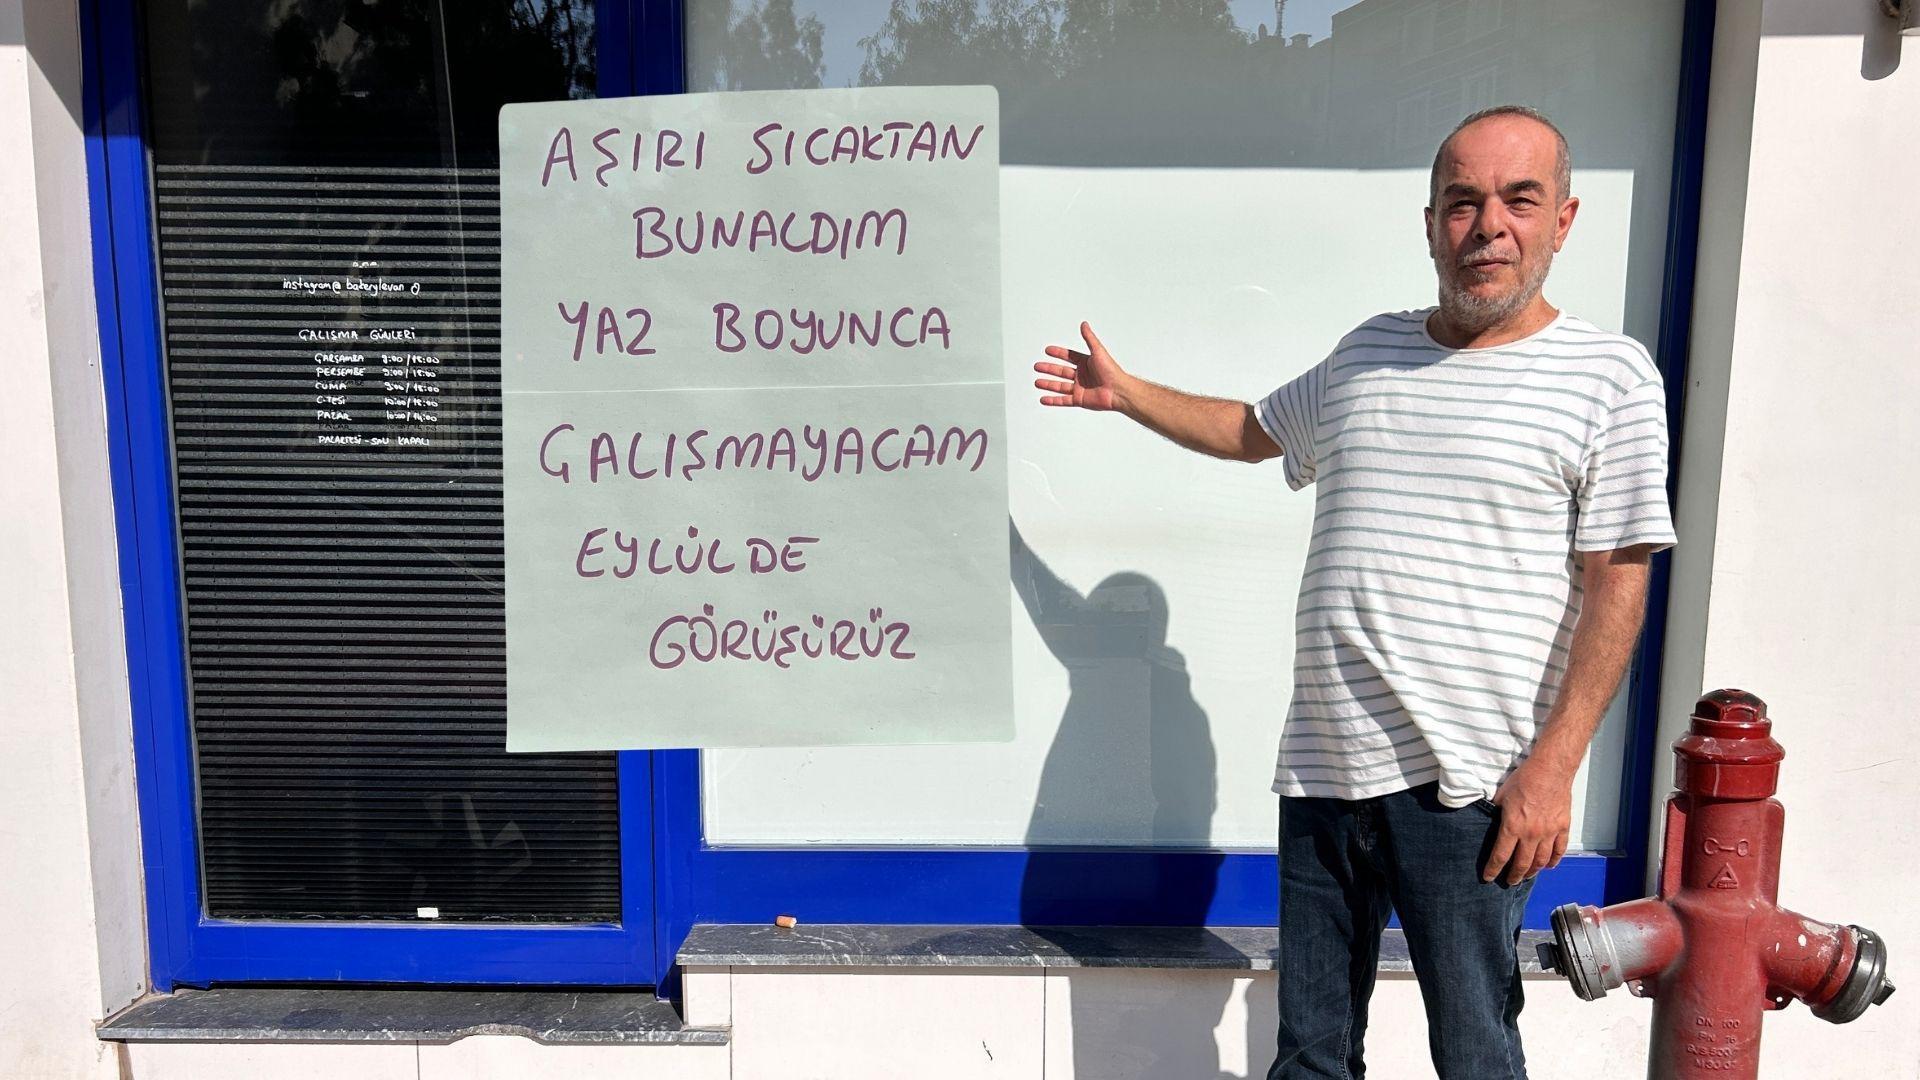 AŞIRI SICAKTAN
BUNALDIM
YAZ BOYUNCA
ÇALIŞMAYACAM
EYLÜLDE
GÖRÜŞÜRÜZ
instagram@ bakerylevan
ÇALIŞMA GÜNLERİ
ÇARŞAMBA 9:00/18:00
PERŞEMBE 9:00/18:00
CUMA 9:00/18:00
C.TESİ 10:00/18:00
PAZAR 10:00/14:00
PAZARTESİ-SALI KAPALI
C-C
DN 100
PN 16